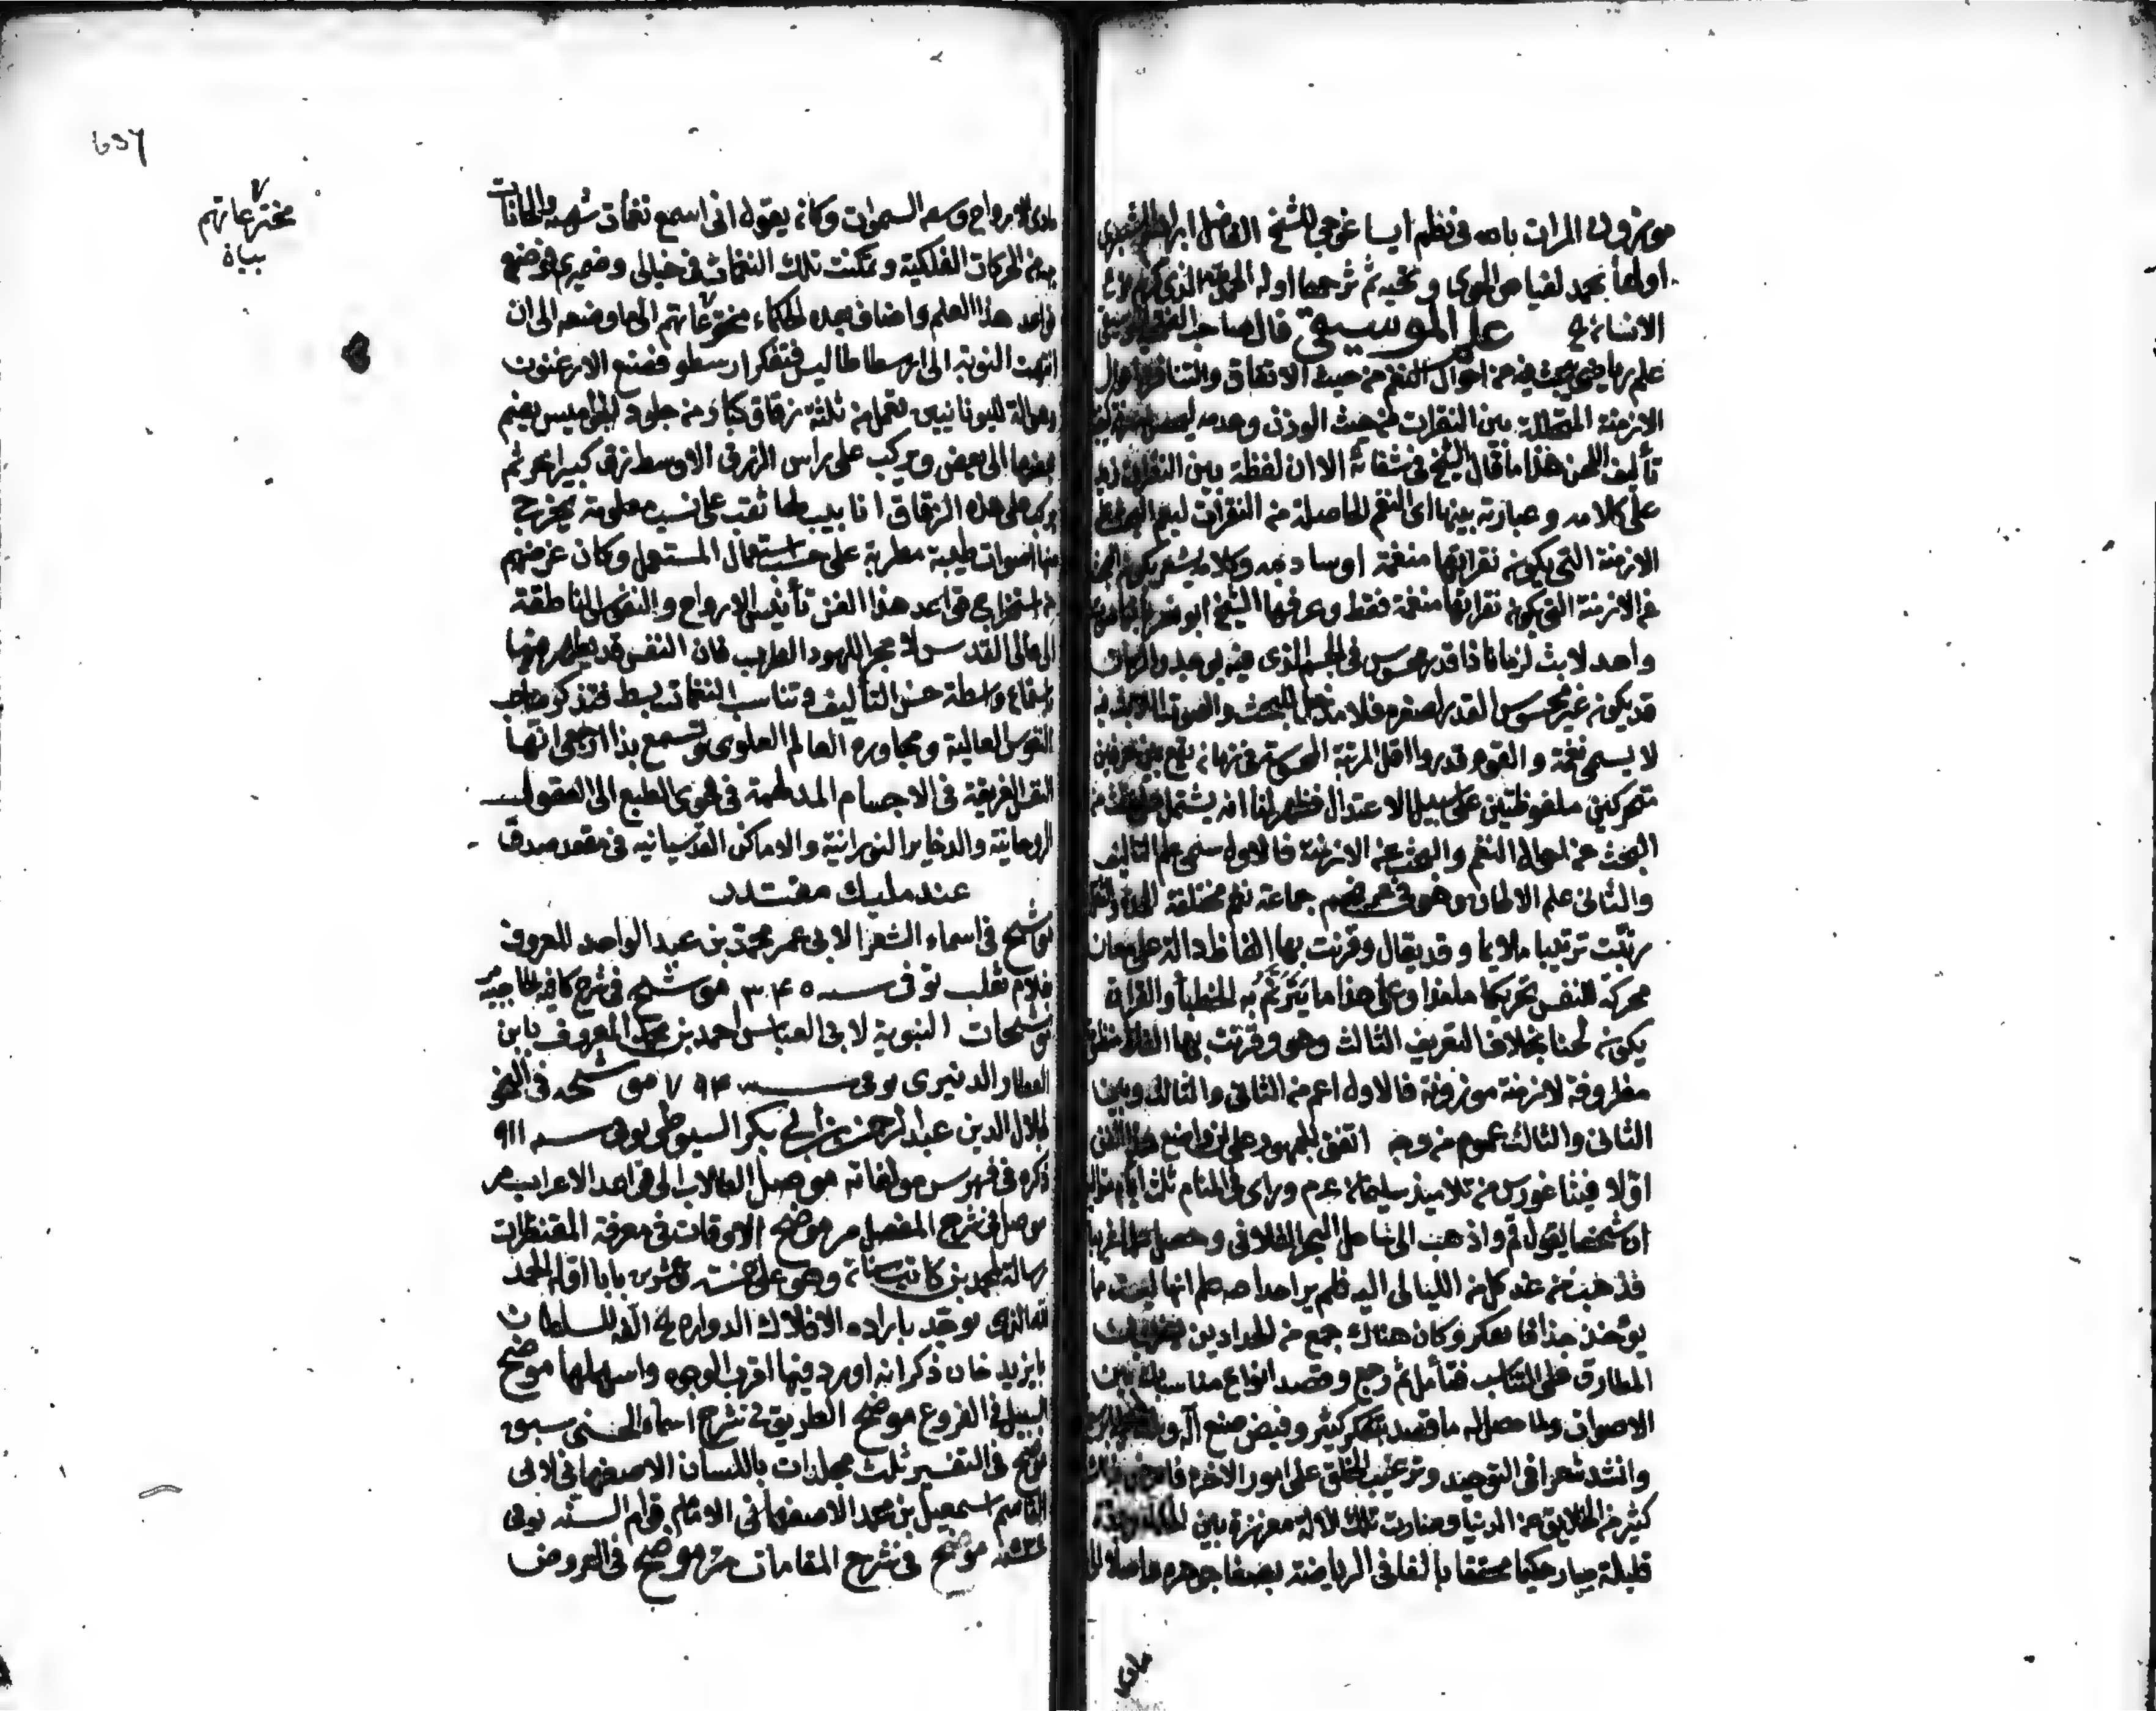 موزون المرات بامه فى نظم ايساغوجى للشيخ الفاضل ابراهيم الشبشرى
اولها بحمد لفياض الهوى ونحيه ثم شرحها اوله الحمد لله الذى كرم نوع
الانسان الخ علم الموسيقى قال صاحب الفتحية الموسيقى
علم رياضى يبحث فيه عن احوال النغم من حيث الاتفاق والتنافر واحوال
الازمنة المتخللة بين النقرات من حيث الوزن وعدمه ليحصل معرفة كيفية
تأليف اللحن هذا ما قال الشيخ فى شفائه الا ان لفظة بين النقرات زيد
على كلامه وعبارته بينها اى النغم الحاصلة من النقرات ليعم البحث
الازمنة التى يكون نقراتها منغمة او ساذجه وكلامه يشعر بكون البحث
عن الازمنة التى يكون نقراتها منغمة فقط وعرفها الشيخ ابو نصر بانها صوت
واحد لابث زمانا ذا قدر محسوس فى الجسم الذى فيه يوجد والزمان
قد يكون غير محسوس القدر لصغره فلا مدخل للبحث والصوت اللابث فيه
لا يسمى نغمة والقوم قدروا اقل المرتبة المحسوسة فى زمان يقع بين حرفين
متحركين ملفوظتين على سبيل الاعتدال فظهر لنا انه يشتمل على بحثين
البحث عن احوال النغم والبحث عن الازمنة فالاول يسمى علم التأليف
والثانى علم الالحان وهو جماعة نغم مختلفة الحدة والثقل
رتبت ترتيبا ملايما وقد يقال وقرنت بها الفاظ دالة على معان
محركة للنفس تحريكا ملذا وعلى هذا ما يترنم به الخطباء والقراء
يكون لحنا بخلاف التعريف الثالث وهو وقرنت بها الفاظ منظومة
مظروفة لازمنة موزونة فالاول اعم من الثانى والثالث وبين
الثانى والثالث عموم من وجه اتفق الجمهور على ان واضع هذا الفن
اولا فيثاغورس من تلاميذ سليمان عم وراى فى المنام ثلاث ايام متوالية
ان شخصا يقول قم واذهب الى ساحل البحر الفلانى وحصل علما غريبا
فذهب من غد كل من الليالى اليه فلم ير احدا علم انها ليست مما
يؤخذ جذافا فعكر وكان هناك جمع من الحدادين يضربون
المطارق على التناسب فتأمل ثم رجع وقصد انواع مناسبات بين
الاصوات ولما حصل له ما قصد بتفكر كثير وفيض صنع آلة
وانشد شعرا فى التوحيد وترغيب الخلق على امور الاخرة
كثير من الخلايق عن الدنيا وصارت تلك الالة معززة بين
قليلة صار حكيما محققا بالغا فى الرياضة بصفا جوهره واصلا الى
ماوى
ماوى الارواح وسعه السموات وكان يقول انى اسمع نغمات شهية والحانات
بهية من الحركات الفلكية وتمكنت تلك النغمات فى خيالى وضميرى فوضع
قواعد هذا العلم واضاف بعده الحكماء مخترعاتهم الى ما وضعه الى ان
انتهت النوبة الى ارسطاطاليس فتفكر ارسطو فصنع الارغنون
وهو آلة لليونانيين تعمل من ثلثة زقاق كبار من جلود الجواميس يضم
بعضها الى بعض ويركب على راس الزق الاوسط زق كبير اخر ثم
يركب على هذه الزقاق انابيب لها ثقب على نسب معلومة يخرج
منها اصوات طيبة مطربة على حسب استعمال المستعمل وكان غرضهم
من استخراج قواعد هذا الفن تأنيس الارواح والنفوس الناطقة
الى عالم القدس لا مجرد اللهو والطرب فان النفس قد يظهر فيها
باستماع واسطة حسن التأليف وتناسب النغمات بسط فتذكر مصاحبة
النفوس العالية ومجاورة العالم العلوى وتسمع نداء ارجعى ايتها
النفس الغريقة فى الاجسام المدلهمة فى فجور الطبع الى العقول
الروحانية والذخاير النورانية والاماكن القدسيانيه فى مقعد صدق
عند مليك مقتدر
موشح فى اسماء الشعرا لابى عمر محمد بن عبد الواحد المعروف
بغلام ثعلب توفى سنه ٣٤٥ موشح فى شرح كافية ابن الحاجب مر
موشحات النبوية لابى العباس احمد بن محمد المعروف بابن
العطار الدنيرى توفى سنه ٧٩٤ موشحه فى النحو
لجلال الدين عبد الرحمن بن ابى بكر السيوطى توفى سنه ٩١١
ذكره فى فهرس مولفاته موصل الطلاب الى قواعد الاعراب مر
موصل فى شرح المفصل مر موضح الاوقات فى معرفة المقنطرات
رسالة لمحمد بن كاتب سنان وهو على خمسة وعشرون بابا اوله الحمد
لله الذى توحد باراده الافلاك الدواره الخ الفه للسلطان
بايزيد خان ذكر انه اورد فيها اقرب الوجوه واسهلها موضح
السبيل فى الفروع موضح الطريق فى شرح اسماء الحسنى سبق
موضح فى التفسير ثلث مجلدات باللسان الاصفهانى لابى
القاسم اسمعيل بن محمد الاصفهانى الامام قوام السنه توفى
سنه موضح فى شرح المقامات مر موضح فى العروض
مخترعاتهم
بيان